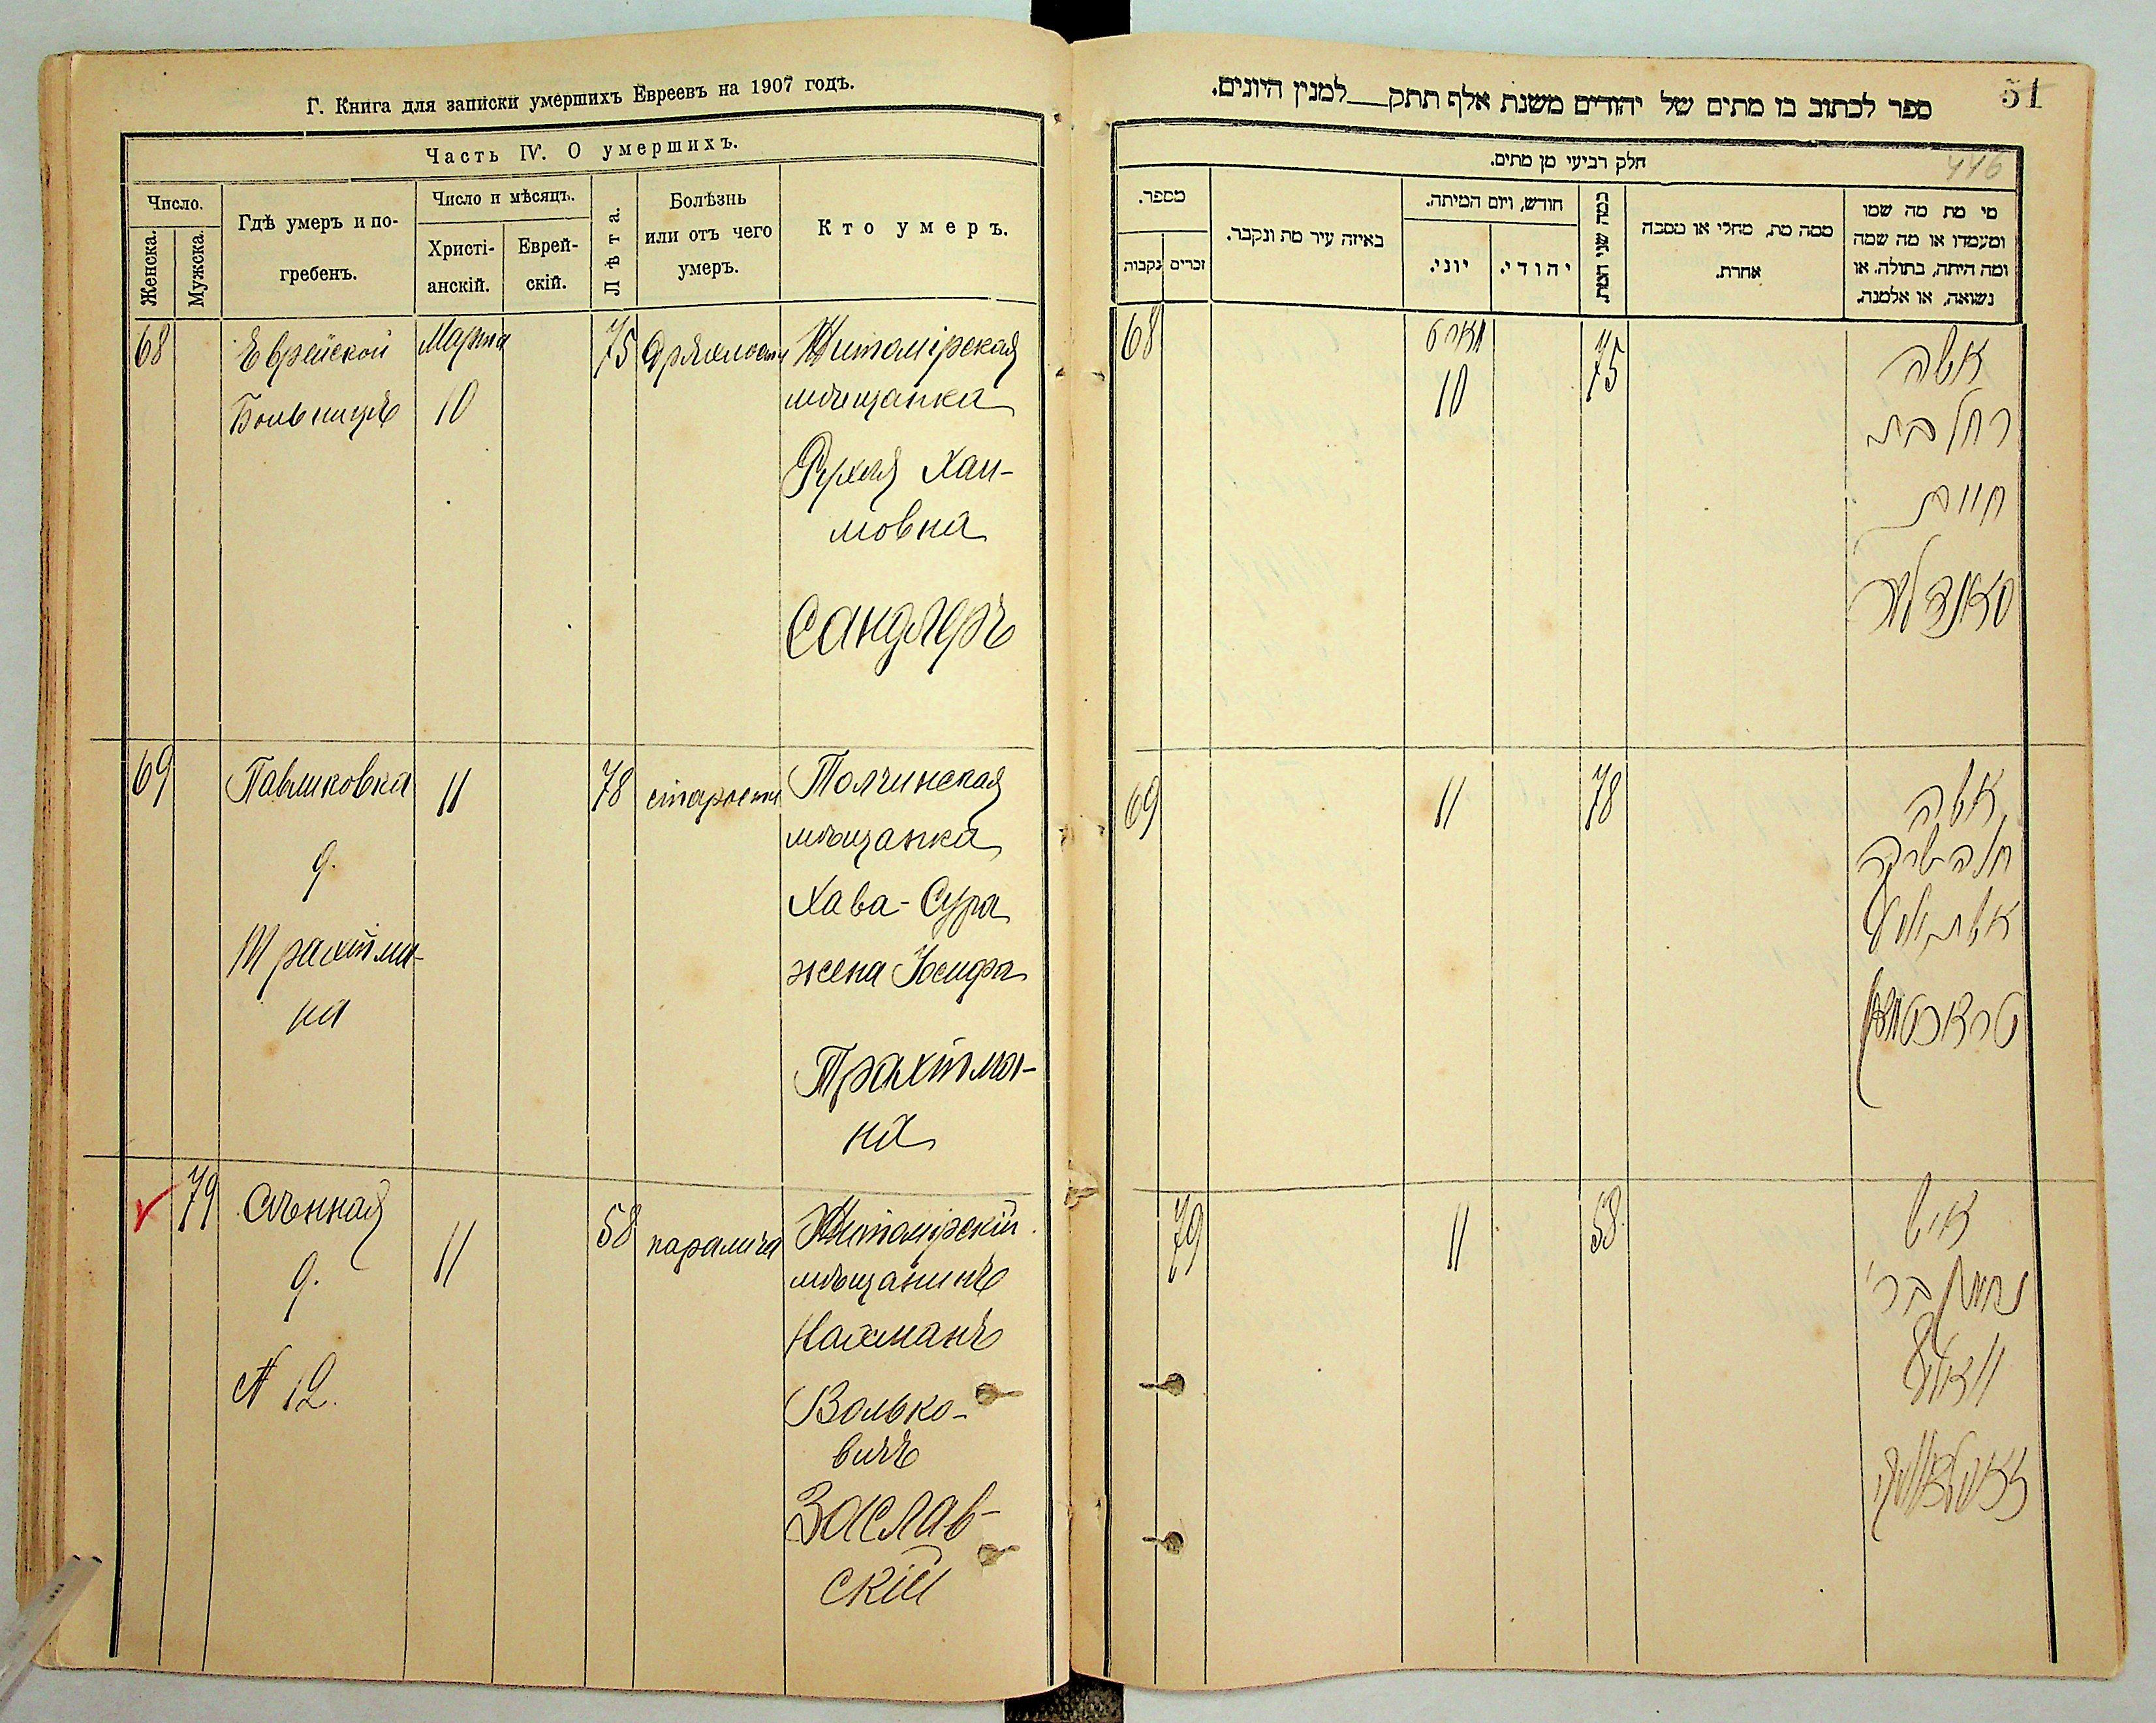 Г. Книга для записки умершихъ Евреевъ на 1907 годъ.
Часть IV. О умершихъ.
Число.
Женска.
Мужска.
Гдѣ умеръ и по-
гребенъ.
Число и мѣсяцъ.
Христі-
анскій.
Еврей-
скій.
Лѣта.
Болѣзнь
или отъ чего
умеръ.
Кто умеръ.
68
Еврейской
Больницѣ
Марта
10
75
Дряхлости
Житомірская
мѣщанка
Рухля Хаи-
мовна
Сандлеръ
69
Павликовка
д.
Трахтма-
на
11
78
старости
Полчинская
мѣщанка
Хава-Сура
жена Іосифа
Трахтма-
на
79
Сѣнная
д.
№ 12.
11
58
паралича
Житомірскій
мѣщанинъ
Нахманъ
Волько-
вичъ
Заслав-
скій
51
446
ספר לכתוב בו מתים של יהודים משנת אלף תתק__למנין היונים.
חלק רביעי מן מתים.
מספר.
נקבות
זכרים
באיזה עיר מת ונקבר.
חודש, ויום המיתה.
יוני.
יהודי.
כמה שני המת.
ממה מת, מחלי או מסבה
אחרת.
מי מת מה שמו
ומעמדו או מה שמה
ומה היתה, בתולה, או
נשואה, או אלמנה.
68
מארט
10
75
אשה
רחל בת
חיים
סאנדלער
69
11
78
אשה
חוה שרה
אשת יוסף
טראכטמאן
79
11
58
איש
נחמן בר'
וואלף
זאסלאווסקי